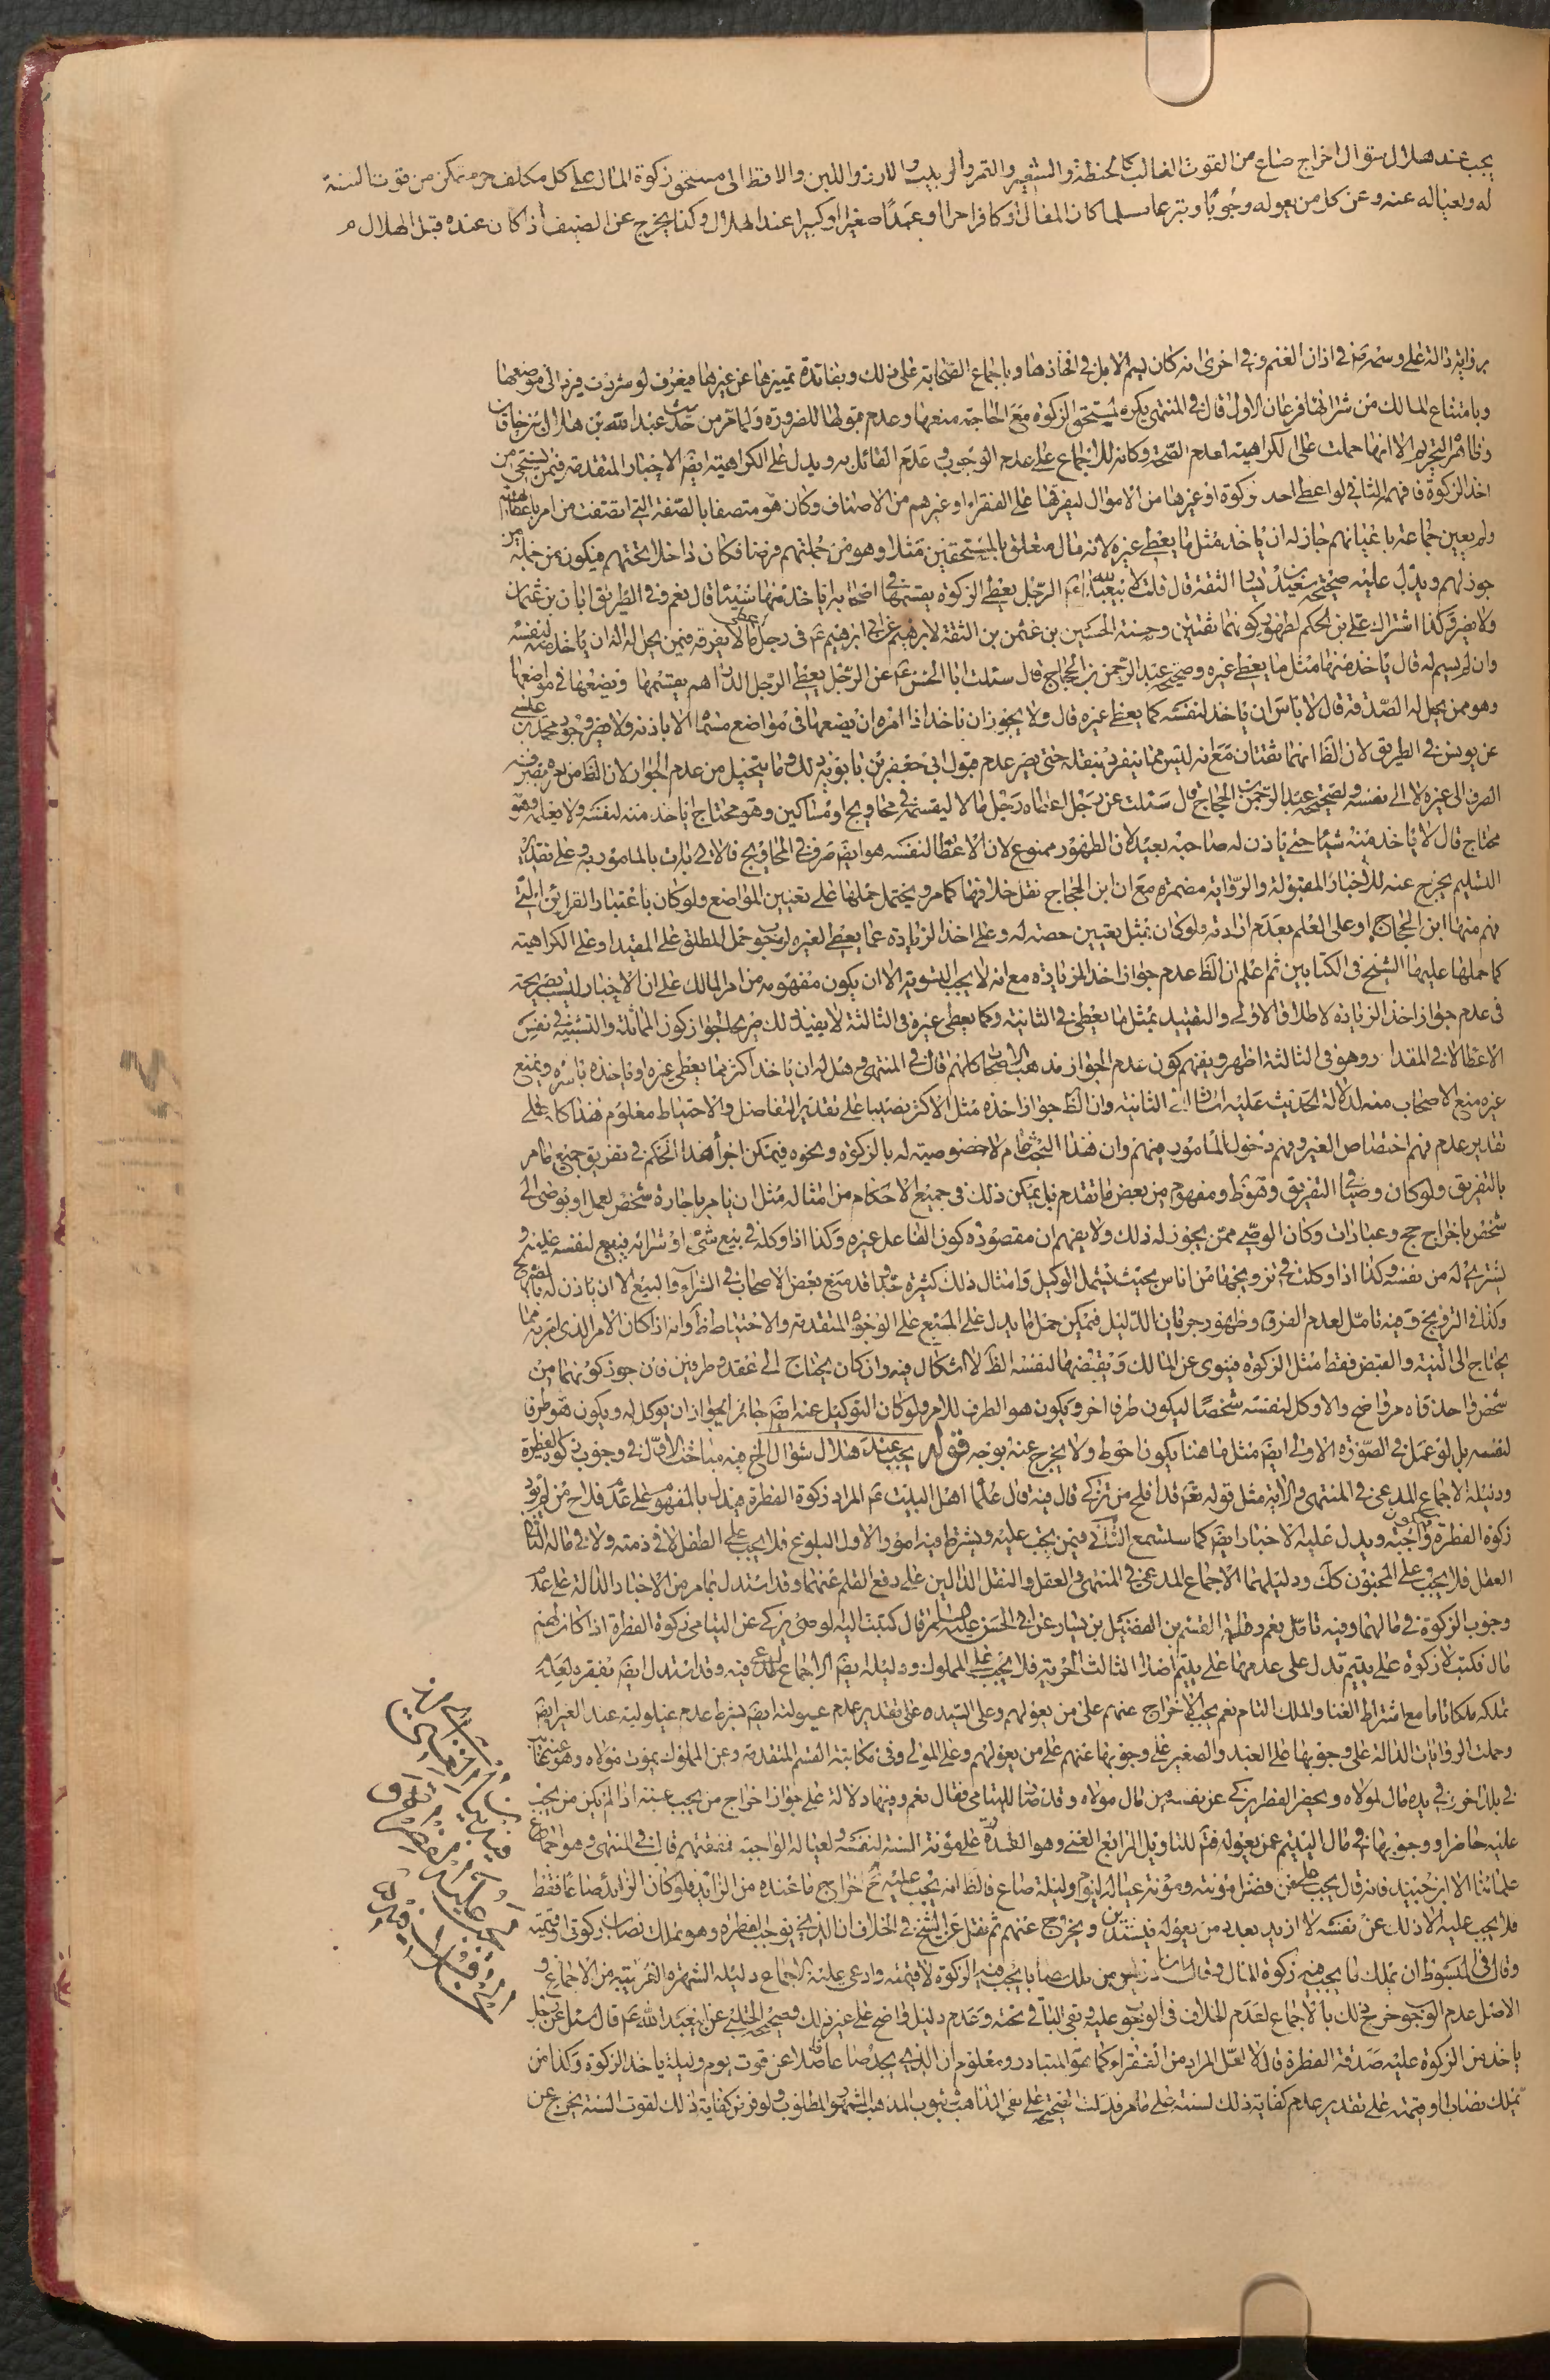 يجب عند هلال شوال اخراج صاع من القوت الغالب كالحنطة والشعير والتمر والزبيب والارز واللبن والاقط الى مستحق زكوة المال على كل مكلف حر متمكن من قوت السنة
له ولعياله عنه وعن كل من يعوله وجوبًا او تبرعا مسلما كان المعال او كافرا حرا او عبدًا صغيرا او كبيرا عند الهلال وكذا يخرج عن الضيف اذا كان عنده قبل الهلال
برواية دالة على وسمه في اذان الغنم وفى اخرى انه كان يسم الابل في افخاذها وباجماع الصحابة على ذلك وبفائدة تميزها عن غيرها فيعرف لو شردت فيردّ الى موضعها
وبامتناع المالك من شرائها فرعان الاول قال في المنتهى يكره لمستحق الزكوة مع الحاجة منعها وعدم قبولها للضرورة ولما مر من عبد الله بن هلال بن خاقان
وظاهره التحريم الا انها حملت على الكراهية لعدم الصحة وكانه للاجماع على عدم الوجوب وعدم القائل به ويدل على الكراهية ايضا الاخبار المتقدمة فيمن يستحيى من
اخذ الزكوة فافهم الثاني لو اعطى احد زكوة او غيرها من الاموال ليفرقها على الفقراء او غيرهم من الاصناف وكان هو متصفا بالصفة التي اتصفت من امر باعطائهم
ولم يعين جماعة باعيانهم جاز له ان ياخذ مثل ما يعطى غيره لانه مال متعلق بالمستحقين مثلا وهو من جملتهم فرضا فكان داخلا تحتهم فيكون من جملة من
جوز لهم ويدل عليه صحيحة سعيد بن يسار الثقة قال قلت لابي عبد الله الرجل يعطى الزكوة يقسمها في اصحابه اياخذ منها شيئا قال نعم وفى الطريق ابان بن عثمان
ولا يضر وكذا اشتراك على بن الحكم لظهور كونهما ثقتين وحسنة الحسين بن عثمن بن الثقة لابرهيم عن ابى ابرهيم في رجل اعطى مالا يفرقه فيمن يحل له اله ان ياخذ منه لنفسه
وان لم يسم له قال ياخذ منها مثل ما يعطى غيره وصحيحة عبد الرحمن بن الحجاج قال سئلت ابا الحسن عن الرجل يعطى الرجل الدراهم يقسمها ويضعها في مواضعها
وهو ممن يحل له الصدقة قال لا باس ان ياخذ لنفسه كما يعطى غيره قال ولا يجوز ان ياخذ اذا امره ان يضعها في مواضع مسماة الا باذنه ولا يضر وجود محمد بن عيسى
عن يونس في الطريق لان الظ انهما ثقتان مع انه ليس مما يتفرد بنقله حتى يضر عدم قبول ابى جعفر بن بابويه ذلك وما يتخيل من عدم الجواز لان الظ من امره بصرفه
الصرف الى غيره لا الى نفسه ولصحيحة عبد الرحمن بن الحجاج قال سئلت عن رجل اعطاه رجل مالا ليقسمه في محاويج او مساكين وهو محتاج اياخذ منه لنفسه ولا يعلمه وهو
محتاج قال لا ياخذ منه شيئا حتى ياذن له صاحبه بعيد لان الظهور ممنوع لان الاعطا لنفسه هو ايضا صرف في المحاويج فالاتي بات بالمامور به وعلى تقدير
التسليم يخرج عنه للاخبار المقبولة والرواية مضمرة مع ان ابن الحجاج نقل خلافها كما مر ويحتمل حملها على تعيين المواضع ولو كان باعتبار القرائن التي
فهم منها ابن الحجاج او على العلم بعدم ارادته ولو كان بمثل تعيين حصته له وعلى اخذ الزيادة عما يعطى لغيره لوجوب حمل المطلق على المقيد او على الكراهية
كما حملها عليها الشيخ في الكتابين ثم اعلم ان الظ عدم جواز اخذ الزيادة مع انه لا يجب التسوية الا ان يكون مفهومه من امر المالك على ان الاخبار ليست بصريحة
في عدم جواز اخذ الزيادة لاطلاق الاولى والتقييد بمثل ما يعطى في الثانية وكما يعطى غيره في الثالثة لا يفيد ذلك صريحا لجواز كون المماثلة والتشبيه في نفس
الاعطا لا في المقدار وهو في الثالثة اظهر ويفهم كون عدم الجواز مذهب الاصحاب كانهم قال في المنتهى وهل له ان ياخذ اكثر مما يعطى غيره او ياخذه باسره ويمنع
غيره منع الاصحاب منه لدلالة الحديث عليه اشارة الى الثانية وان الظ جواز اخذه مثل الاكثر نصيبا على تقدير التفاضل والاحتياط معلوم هذا كله على
تقدير عدم فهم اختصاص الغير وفهم دخول المامور منهم وان هذا البحث عام لا خصوصية له بالزكوة ونحوه فيمكن اجراء هذا الحكم في تفريق جميع ما امر
بالتفريق ولو كان وصيا في التفريق وهو ظ ومفهوم من بعض ما تقدم بل يمكن ذلك في جميع الاحكام من امثاله مثل ان يامر باجارة شخص لعمل او يوصى الى
شخص باخراج حج وعبادات وكان الوصي ممن يجوز له ذلك ولا يفهم ان مقصوده كون الفاعل غيره وكذا اذا وكله في بيع شئ او شرائه فيبيع لنفسه عليه و
يشترى له من نفسه وكذا اذا وكلت في تزويجها من اناس بحيث يشمل الوكيل وامثال ذلك كثيرة جدا وقد منع بعض الاصحاب في الشراء والبيع الا ان ياذن له بالتصريح
وكذا في التزويج وفيه تامل لعدم الفرق وظهور جريان الدليل فيمكن حمل ما يدل على المنع على الوجوه المتقدمة والاحتياط ظ وانه اذا كان الامر الذي امر به مما
يحتاج الى النية والقبض فقط مثل الزكوة فينوى عن المالك ويقبضها لنفسه الظ لا اشكال فيه وان كان يحتاج الى عقد وطرفين فان جوز كونهما من
شخص واحد فامره واضح والا وكل لنفسه شخصًا ليكون طرفا اخر ويكون هو الطرف للامر ولو كان التوكيل عنه ايضا جائز الجواز ان يوكل له ويكون هو طرفا
لنفسه بل لو عمل في الصورة الاولى ايضا مثل ما هنا يكون احوط ولا يخرج عنه بوجه قوله يجب عند هلال شوال الخ فيه مباحث الاول في وجوب زكوة الفطرة
ودليله الاجماع المدعى في المنتهى والاية مثل قوله تع قد افلح من تزكى قال فيه قال علما اهل البيت المراد زكوة الفطرة فيدل بالمفهوم على عدم فلاح من لم يؤد
زكوة الفطرة فتكون واجبة ويدل عليه الاخبار ايضا كما ستسمع الثاني فيمن يجب عليه ويشترط فيه امور الاول البلوغ فلا يجب على الطفل لا في ذمته ولا في ماله الثاني
العقل فلا يجب على المجنون كك ودليلهما الاجماع المدعى في المنتهى والعقل والنقل الدالين على رفع القلم عنهما وقد استدل بما مر من الاخبار الدالة على عدم
وجوب الزكوة في مالهما وفيه تامل نعم رواية القسم بن الفضيل بن يسار عن ابى الحسن عليه السلم قال كتبت اليه الوصى يزكى عن اليتامى زكوة الفطرة اذا كان لهم
مال فكتب لا زكوة على يتيم تدل على عدمها على يتيم الثالث الحرية فلا يجب على المملوك ودليله ايضا الاجماع المدعى فيه وقد استدل ايضا بفقره لعدم
تملكه ملكا تاما مع اشتراط الغنا والملك التام نعم يجب الاخراج عنهم على من يعولهم وعلى السيده على تقدير عدم عيلولته ايضا بشرط عدم عيلولية عند الغير ايضا
وحملت الروايات الدالة على وجوبها على العبد والصغير على وجوبها عنهم على من يعولهم وعلى المولى وفى مكاتبة القسم المتقدمة وعن المملوك يموت مولاه وهو عنه غائب
في بلد اخر وفي يده مال لمولاه ويحضر الفطر يزكى عن نفسه من مال مولاه وقد صار لليتامى فقال نعم وفيها دلالة على جواز اخراج من يجب عنه اذا لم يكن من يجب
عليه حاضرا ووجوبها في مال اليتيم عمن يعوله الرابع الغنى وهو القدرة على مؤنة السنة لنفسه ولعياله الواجبة نفقتهم قال في المنتهى وهو اجماع
علمائنا الا ابن جنيد فانه قال يجب على من فضل مؤنته ومؤنة عياله ليومه وليلته صاع فالظ انه يجب عليه اخراج ما عنده من الزايد فلو كان الزايد صاعًا فقط
فلا يجب عليه الا ذلك عن نفسه لا ازيد بعدد من يعوله فيستدين ويخرج عنهم ثم نقل عن الشيخ في الخلاف ان الذي يوجب الفطره وهو تملك نصاب زكوتى او قيمته
وقال في المبسوط ان يملك ما يجب فيه زكوة المال وقال ابن ادريس من ملك نصابا يجب فيه الزكوة لا قيمته وادعى عليه الاجماع ودليله الشهرة القريبة من الاجماع و
الاصل عدم الوجوب خرج ذلك بالاجماع لعدم الخلاف في الوجوب عليه وبقى الباقي تحته وعدم دليل واضح على غير ذلك وصحيحة الحلبى عن ابى عبد الله قال سئل عن رجل
ياخذ من الزكوة عليه صدقة الفطرة قال لا لعل المراد من الفقراء كما هو المتبادر ومعلوم ان الذي يجد صاعا فاضلا عن قوت يوم وليلة ياخذ الزكوة وكذا من
يملك نصابا او قيمته على تقدير عدم كفاية ذلك لسنته على ما مر فدلت الصحيحة على نفى المذاهب وثبوت المذهب المشهور المطلوب ولو فرض كفاية ذلك لقوت السنة يخرج عن